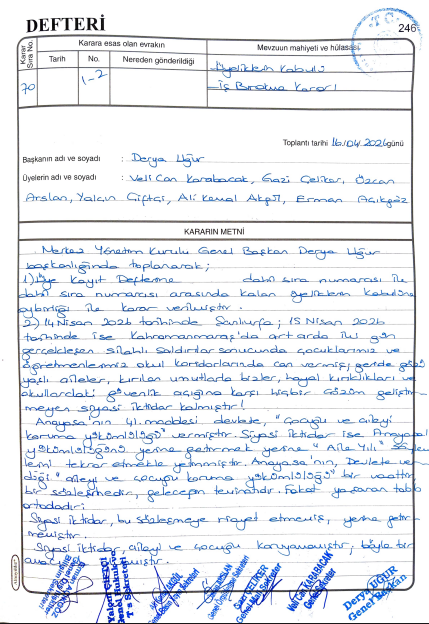 DEFTERİ
246
Karar Sıra No.
Karara esas olan evrakın
Mevzuun mahiyeti ve hülasası
Tarih
No.
Nereden gönderildiği
70
1-2
Üyeliklerin Kabulü
İş Bırakma Kararı
Toplantı tarihi 16/04/2026 günü
Başkanın adı ve soyadı : Derya Uğur
Üyelerin adı ve soyadı : Veli Can Karabacak, Gazi Çeliker, Özcan
Arslan, Yalçın Çiftçi, Ali Kemal Akgül, Erman Açıkgöz
KARARIN METNİ
Merkez Yönetim Kurulu Genel Başkan Derya Uğur
başkanlığında toplanarak;
1) Üye Kayıt Defterine dahil sıra numarası ile
dahil sıra numarası arasında kalan üyeliklerin Kabulüne
oybirliği ile karar verilmiştir.
2) 14 Nisan 2026 tarihinde Şanlıurfa; 15 Nisan 2026
tarihinde ise Kahramanmaraş'da art arda iki gün
gerçekleşen silahlı saldırılar sonucunda çocuklarımız ve
öğretmenlerimiz okul koridorlarında can vermiş, geride gözü
yaşlı aileler, kırılan umutlarla bizler, hayal kırıklıkları ve
okullardaki güvenlik açığına karşı hiçbir çözüm geliştir-
meyen siyasi iktidar kalmıştır!
Anayasa'nın 41. maddesi devlete, "Çocuğu ve aileyi
koruma yükümlülüğü" vermiştir. Siyasi iktidar ise Anayasal
yükümlülüğünü yerine getirmek yerine "Aile Yılı" söylem-
lerini tekrar etmekle yetinmiştir. Anayasa'nın, Devlete ver-
diği "aileyi ve çocuğu koruma yükümlülüğü" bir vaattir,
bir sözleşmedir, geleceğin teminatıdır. Fakat yaşanan tablo
ortadadır:
Siyasi iktidar, bu sözleşmeye riayet etmemiş, yerine getir-
memiştir.
Siyasi iktidar, aileyi ve çocuğu koruyamamıştır; böyle bir
Genel Hukuk ve
T s Sekreteri
Veli Can KARABACAK
Genel Sekreter
Derya UĞUR
Genel Başkan